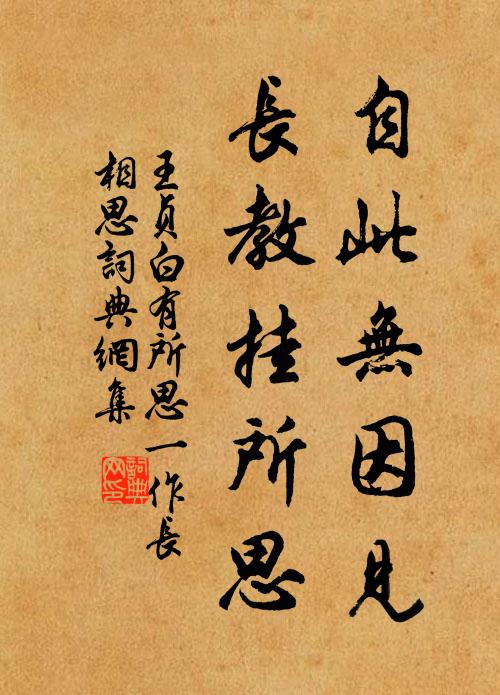 自此無因見
長教挂所思
王貞白有所思一作長
相思詞典網集
詞典
網印